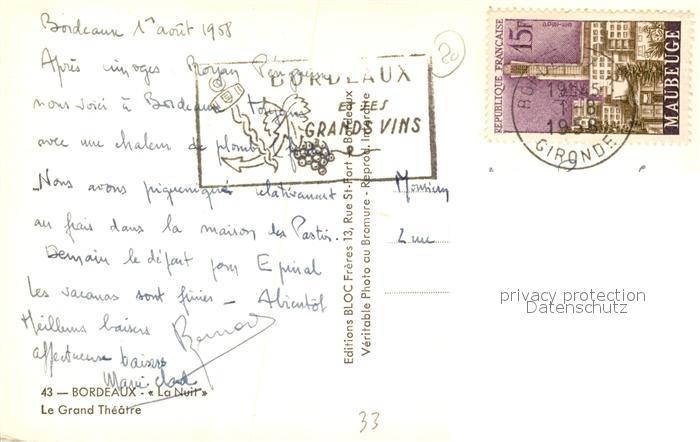 Bordeaux 1er août 1958
Après Limoges Royan
nous voici à Bordeaux toujours
avec une chaleur de plomb
Nous avons piqueniqué relativement
au frais dans la maison les Pastis.
Demain le départ pour Epinal
Les vacances sont finies – A bientôt
Meilleurs baisers Bernard
affectueux baisers
Marie
43 — BORDEAUX - « La Nuit »
Le Grand Théâtre
BORDEAUX
ET SES
GRANDS VINS
Editions BLOC Frères 13, Rue St-Fort - Bordeaux
Véritable Photo au Bromure - Reprod. Interdite
20
RÉPUBLIQUE FRANÇAISE
15F
MAUBEUGE
1-8
1958
GIRONDE
Monsieur
33
privacy protection
Datenschutz